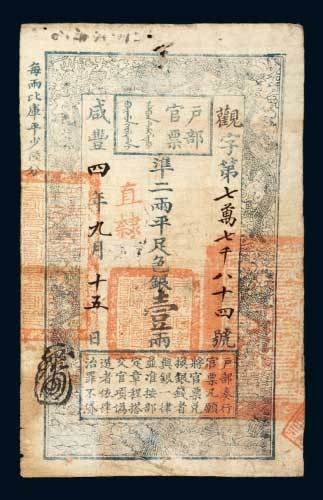 户部
官票
觀字第七萬七千八十四號
準二兩平足色銀壹兩
直隸
咸豐四年九月十五日
每兩比庫平少陸分
户部奏行
官票凡願
將官票兌
換銀錢者
與銀一律
並准按部
定章程搭
交官項偽
造者依律
治罪不貸